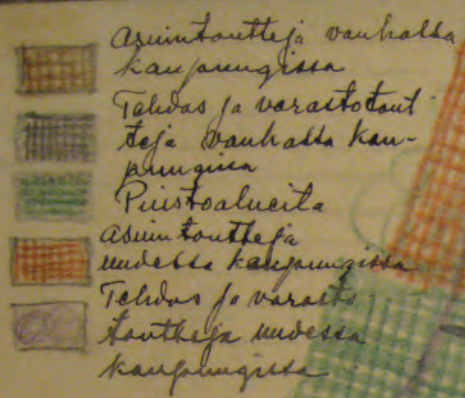 Asuintontteja vanhassa
kaupungissa
Tehdas ja varastotont-
teja vanhassa kau-
pungissa
Puistoalueita
Asuintontteja
uudessa kaupungissa
Tehdas ja varasto-
tontteja uudessa
kaupungissa